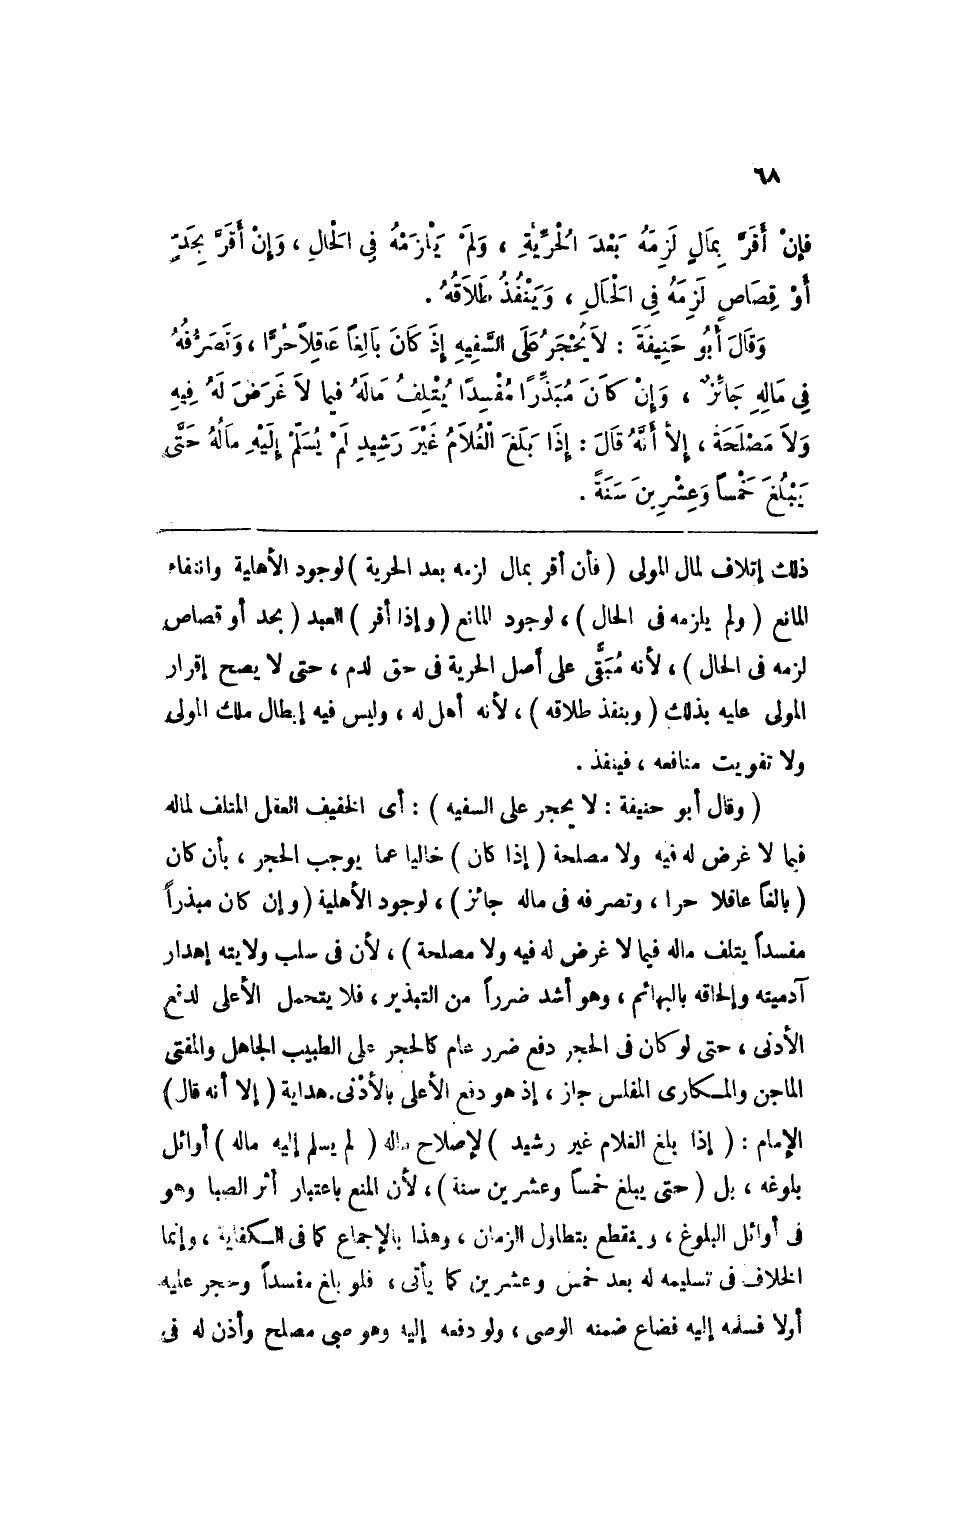 ٦٨
فَإِنْ أَقَرَّ بِمَالٍ لَزِمَهُ بَعْدَ الْحُرِّيَّةِ ، وَلَمْ يَلْزَمْهُ فِي الْحَالِ ، وَإِنْ أَقَرَّ بِحَدٍّ
أَوْ قِصَاصٍ لَزِمَهُ فِي الْحَالِ ، وَيَنْفُذُ طَلَاقُهُ .
وَقَالَ أَبُو حَنِيفَةَ : لاَ يُحْجَرُ عَلَى السَّفِيهِ إِذَ كَانَ بَالِغاً عَاقِلاً حُرًّا ، وَتَصَرُّفُهُ
فِي مَالِهِ جَائِزٌ ، وَإِنْ كَانَ مُبَذِّرًا مُفْسِدًا يُتْلِفُ مَالَهُ فِيما لاَ غَرَضَ لَهُ فِيهِ
وَلاَ مَصْلَحَةَ ، إِلاَّ أَنَّهُ قَالَ : إِذَا بَلَغَ الْغُلاَمُ غَيْرَ رَشِيدٍ لَمْ يُسَلَّمْ إِلَيْهِ مَالُهُ حَتَّى
يَبْلُغَ خَمْساً وَعِشْرِينَ سَنَةً .
ذلك إتلاف لمال المولى ( فأن أقر بمال لزمه بعد الحرية ) لوجود الأهلية وانتفاء
المانع ( ولم يلزمه فى الحال ) ، لوجود المانع ( وإذا أقر ) العبد ( بحد أو قصاص
لزمه فى الحال ) ، لأنه مُبَقًّى على أصل الحرية فى حق لدم ، حتى لا يصح إقرار
المولى عليه بذلك ( وينفذ طلاقه ) ، لأنه أهل له ، وليس فيه إبطال ملك المولى
ولا تفويت منافعه ، فينفذ .
( وقال أبو حنيفة : لا يحجر على السفيه ) : أى الخفيف العقل المتلف لماله
فيما لا غرض له فيه ولا مصلحة ( إذا كان ) خاليا عما يوجب الحجر ، بأن كان
( بالغاً عاقلا حرا ، وتصرفه فى ماله جائز ) ، لوجود الأهلية ( وإن كان مبذراً
مفسداً يتلف ماله فيما لا غرض له فيه ولا مصلحة ) ، لأن فى سلب ولايته إهدار
آدميته وإلحاقه بالبهائم ، وهو أشد ضرراً من التبذير ، فلا يتحمل الأعلى لدفع
الأدنى ، حتى لو كان فى الحجر دفع ضرر عام كالحجر على الطبيب الجاهل والمفتى
الماجن والمكارى المفلس جاز ، إذ هو دفع الأعلى بالأدْنى. هداية ( إلا أنه قال )
الإمام : ( إذا بلغ الغلام غير رشيد ) لإصلاح ماله ( لم يسلم إليه ماله ) أوائل
بلوغه ، بل ( حتى يبلغ خمساً وعشرين سنة ) ، لأن المنع باعتبار أثر الصبا وهو
فى أوائل البلوغ ، وينقطع بتطاول الزمان ، وهذا بالإجماع كما فى الكفاية ، وإنما
الخلاف فى تسليمه له بعد خمس وعشرين كما يأتى ، فلو بلغ مفسداً وحجر عليه
أولا فسلمه إليه فضاع ضمنه الوصى ، ولو دفعه إليه وهو صبى مصلح وأذن له فى